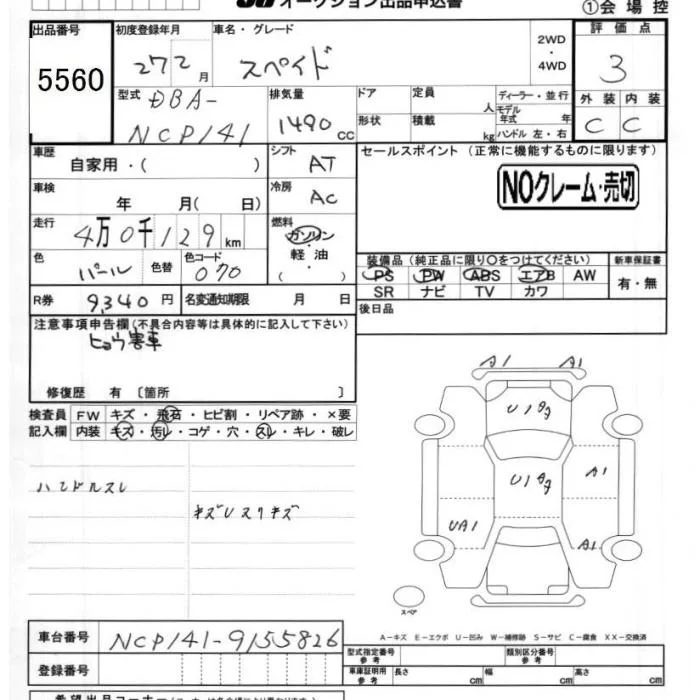 オークション出品申込書
①会場控
出品番号 初度登録年月 車名・グレード 評価点
5560 272月 スペイド 2WD・4WD 3
外装 内装
C C
型式 DBA-NCP141 排気量 1490cc ドア 形状 定員 人 積載 kg ディーラー・並行 モデル年式 年 ハンドル 左・右
車歴 自家用・( ) シフト AT
セールスポイント (正常に機能するものに限ります)
NOクレーム・売切
車検 年 月( 日) 冷房 AC
走行 4万0千129km 燃料 ガソリン・軽油・( )
色 パール 色替 色コード 070
装備品 (純正品に限り○をつけてください) 新車保証書
PS PW ABS エアB AW
SR ナビ TV カワ
有・無
R券 9,340円 名変通知期限 月 日
後日品
注意事項申告欄(不具合内容等は具体的に記入して下さい)
ヒョウ害車
修復歴 有 〔箇所 〕
検査員記入欄 FW キズ・飛石・ヒビ割・リペア跡・×要
内装 キズ・汚レ・コゲ・穴・スレ・キレ・破レ
ハンドルスレ
A1 A1
U1
U1
A1
UA1
A1
スペア
A-キズ E-エクボ U-凹み W-補修跡 S-サビ C-腐食 XX-交換済
車台番号 NCP141-9155826
登録番号
型式指定番号 参考 類別区分番号 参考
車庫証明用 参考 長さ cm 幅 cm 高さ cm